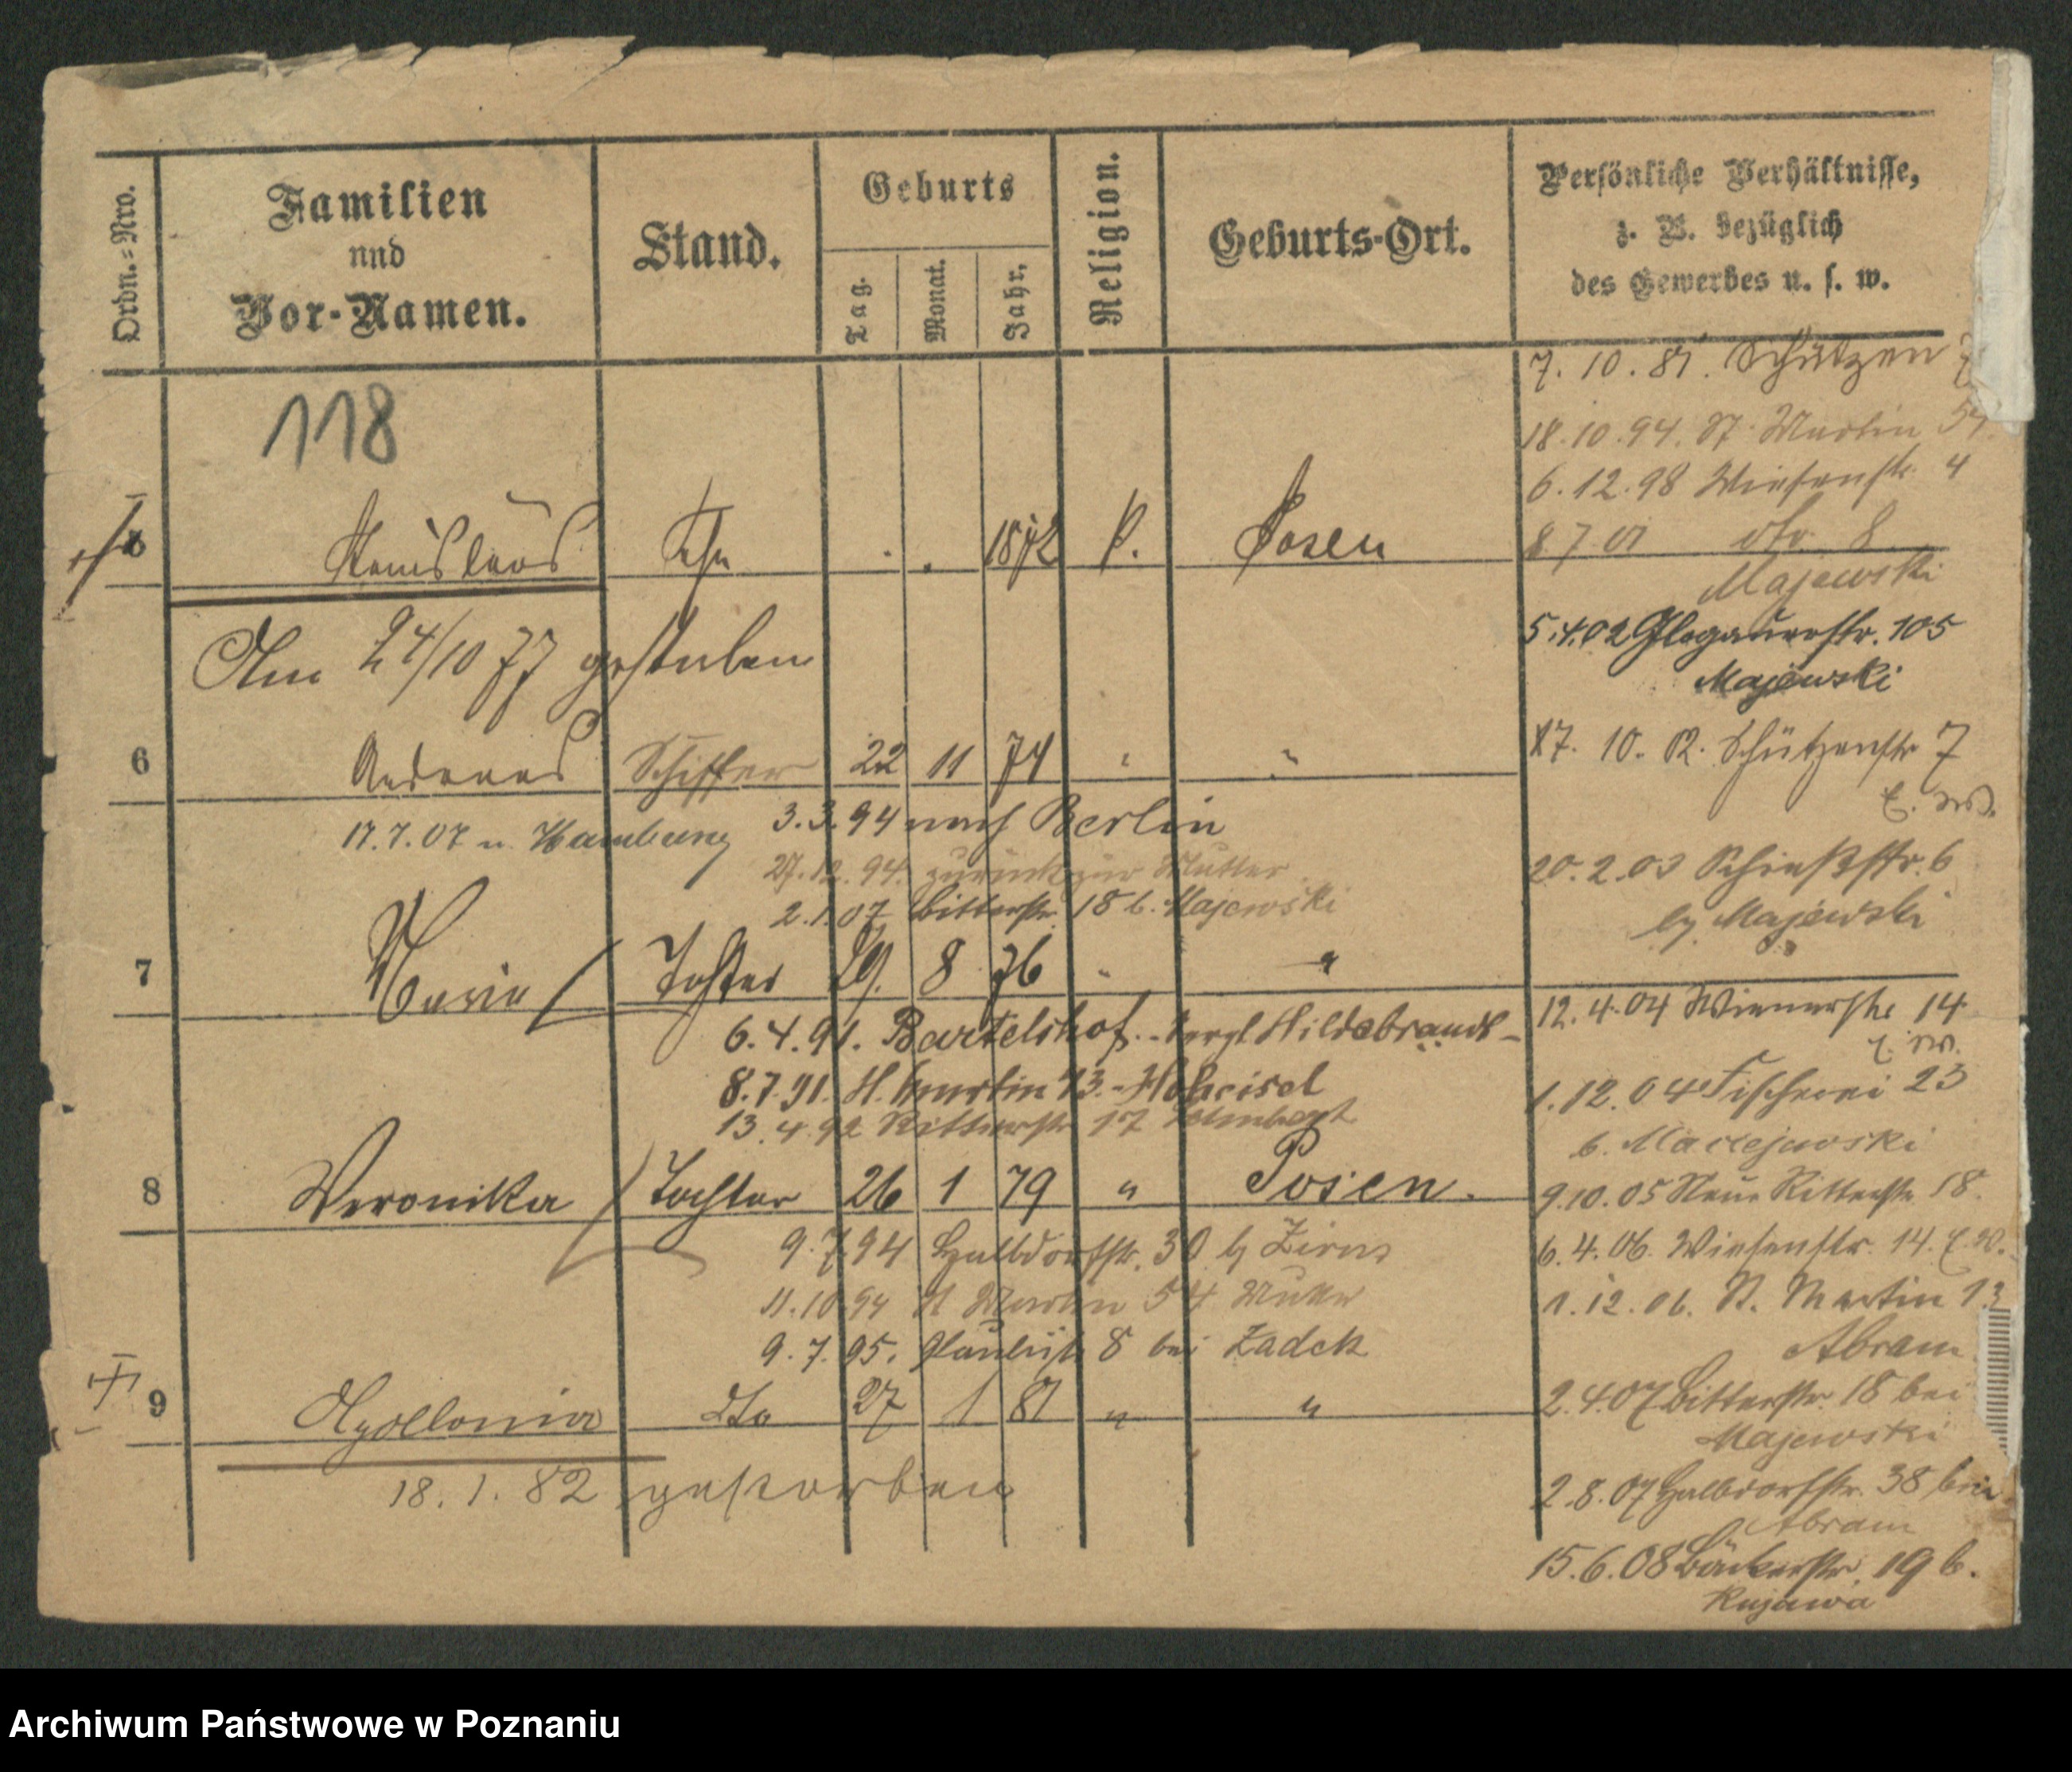 Ordn.=Nro.
Familien
und
Vor-Namen.
Stand.
Geburts
Tag.
Monat.
Jahr.
Religion.
Geburts-Ort.
Persönliche Verhältnisse,
z. B. bezüglich
des Gewerbes u. s. w.
118
Stanislaus Sohn . . 1872 k. Posen
Am 24/10 77 gestorben
6 Andreas Schiffer 22 11 74 " "
3.3.94 nach Berlin
17.7.07 n. Hamburg
27.12.94. zurück zur Mutter.
2.1.07 Bitterstr. 18 b. Majewski
7 Maria Tochter 29. 8 76 " "
6.4.91. Bartelshof. Hildebrandt
8.7.91. St. Martin 43. Hoheisel
13.4.92 Ritterstr 17
8 Veronika Tochter 26 1 79 " Posen.
9.7.94 Halbdorfstr. 30 b
11.10.94 St Martin 54 Mutter
9.7.95. 8 bei Zadek
9 Apollonia dto 27 1 81 " "
18.1.82 gestorben
7.10.87. Schützen
18.10.94. St. Martin 54.
6.12.98 Wiesenstr. 4
8 7 01 dto. 8
Majewski
5.4.02 Glogauerstr. 105
Majewski
17. 10. 02. Schützenstr 7
20.2.03 Schießstr. 6
by Majewski
12.4.04 Wienerstr 14
1.12.04 Fischerei 23
b. Maciejewski
9.10.05 Neue Ritterstr. 18.
6.4.06. Wiesenstr. 14.
1.12.06. St. Martin 13
Abram
2.4.07 Bitterstr. 18 bei
Majewski
2.8.07 Halbdorfstr. 38 bei
Abram
15.6.08 Bäckerstr. 19 b.
Kujawa
Archiwum Państwowe w Poznaniu